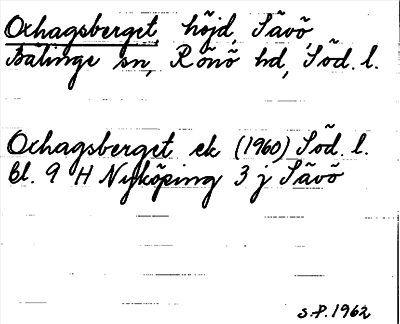 Oxhagsberget höjd, Sävö,
Bälinge sn, Rönö hd, Söd. l.
Oxhagsberget ek (1960) Söd. l.
Bl. 9 H Nyköping 3 j Sävö
S.P. 1962